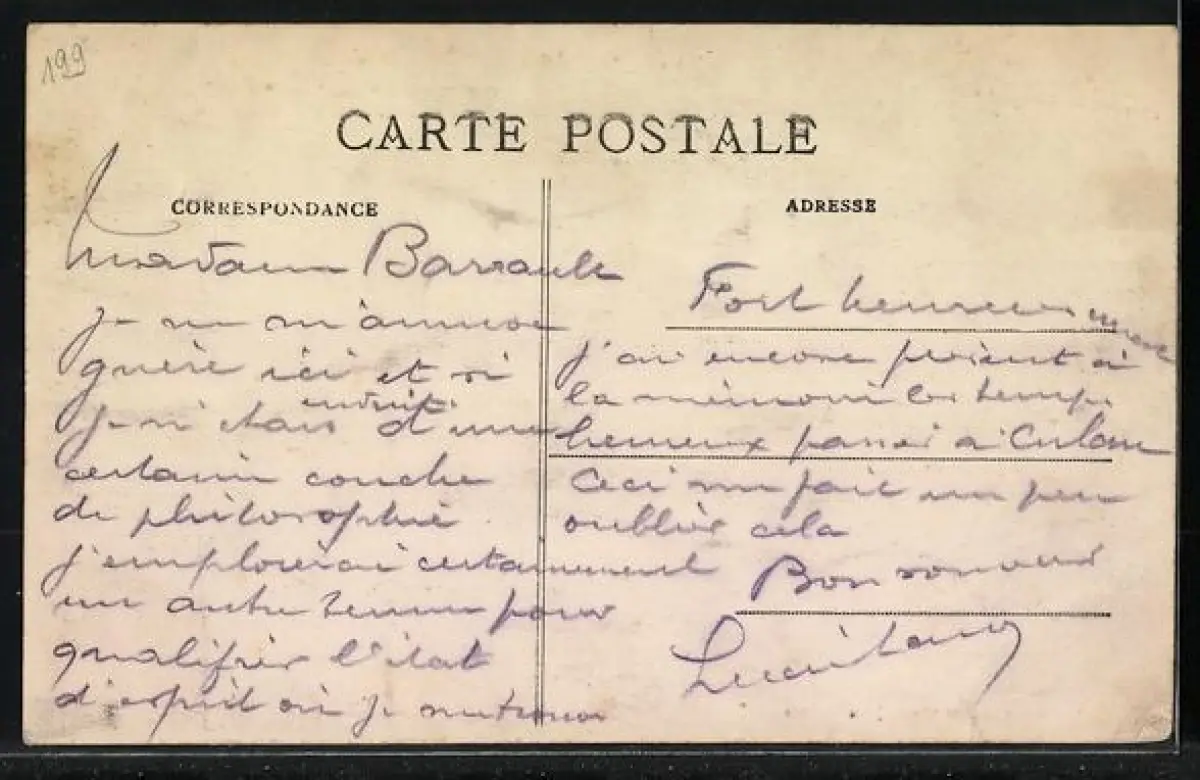 199
CARTE POSTALE
CORRESPONDANCE
Madame Barrault
je ne m'amuse
guère ici et si
je n'étais enduit d'une
certaine couche
de philosophie
j'emploierai certainement
un autre terme pour
qualifier l'état
d'esprit où je me trouve
ADRESSE
Fort heureusement
j'ai encore présent à
la mémoire les temps
heureux passés à
Ceci me fait un peu
oublier cela
Bon souvenir